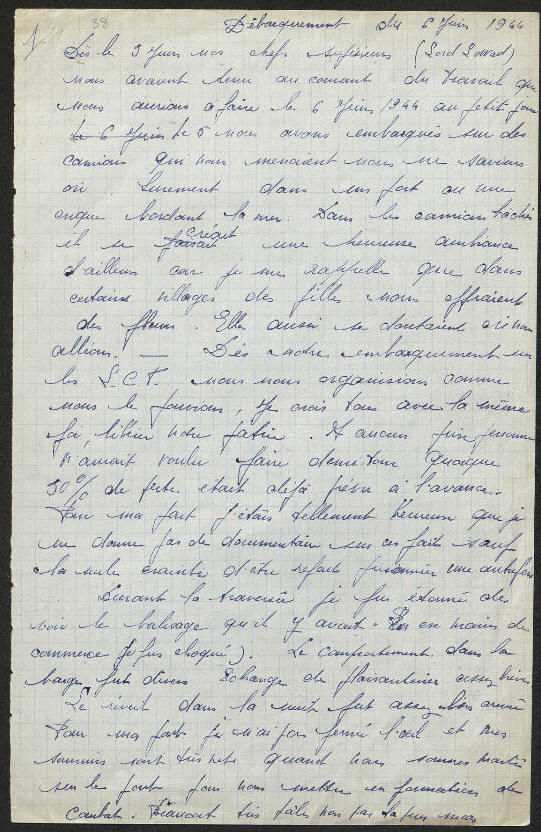 38
Débarquement du 6 Juin 1944
Dès le 3 Juin nos chefs supérieurs (Lord Lovad)
nous avaient tenu au courant du travail que
nous aurions a faire le 6 Juin 1944 au petit jour
le 6 Juin Le 5 nous avons embarqués sur des
camions qui nous menaient nous ne savions
où. Surement dans un port ou une
crique bordant la mer. Dans les camions bachés
il se faisait créait une heureuse ambiance
d'ailleurs car je me rappelle que dans
certains villages des filles nous offraient
des fleurs. Elles aussi se doutaient où nous
allions. — Dès notre embarquement sur
les L.C.T. nous nous organisions comme
nous le pouvions, Je crois tous avec la même
foi, libérer notre patrie. A aucun prix personne
n'aurait voulu faire demi tour quoique
50% de perte était déjà prévu à l'avance.
Pour ma part j'étais tellement heureux que je
ne donne pas de documentaire sur ces faits sauf
la seule crainte d'être refait prisonnier une autre fois
Durant la traversée je fus étonné de
voir le balisage qu'il y avait. En ex marin de
commerce je fus choqué). Le comportement dans la
barge fut divers Echange de plaisanteries assez
Le reveil dans la nuit fut assez
Pour ma part je n'ai pas fermé l'œil et mes
souvenirs sont très nets quand nous sommes montés
sur le pont pour nous mettre en formation de
Combat. très pâles non par la peur mais